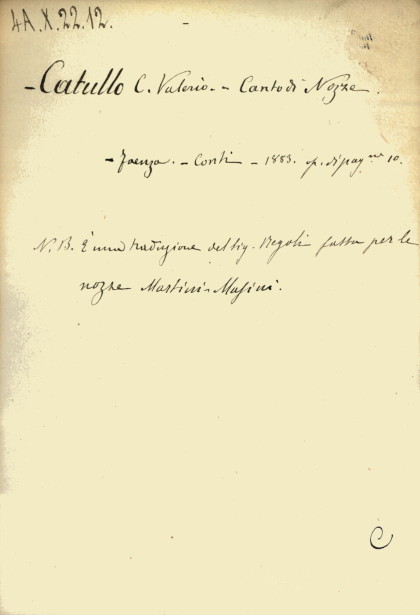 4A.X.22.12.
- Catullo C. Valerio. - Canto di Nozze.
- Faenza. - Conti - 1883. op. di pag.ne 10.
N.B. È una traduzione del sig. Regoli fatta per le
nozze Martini-Masini.
C